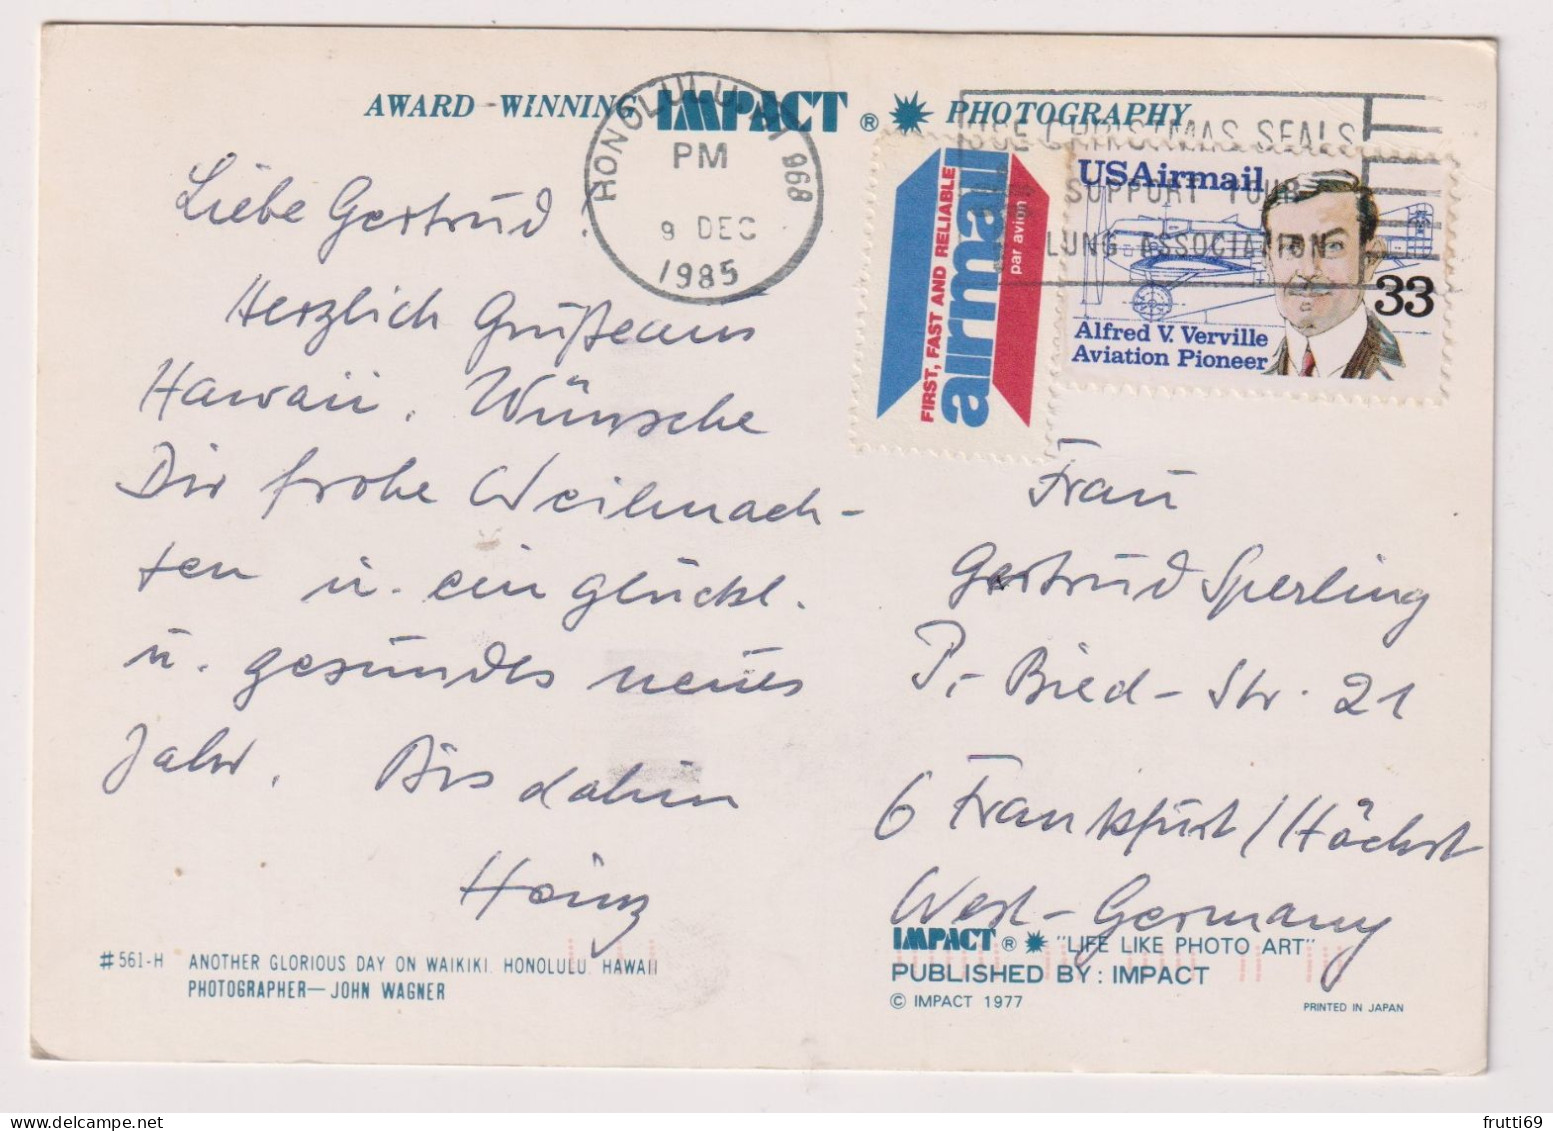 AWARD-WINNING IMPACT ® PHOTOGRAPHY
HONOLULU, HI 968
PM
9 DEC
1985
USE CHRISTMAS SEALS
SUPPORT YOUR
LUNG ASSOCIATION
FIRST, FAST AND RELIABLE
airmail
par avion
USAirmail
33
Alfred V. Verville
Aviation Pioneer
Liebe Gertrud
Herzlich Grüße aus
Hawaii. Wünsche
Dir frohe Weihnach-
ten u. ein glückl.
u. gesundes neues
Jahr. Bis dahin
Heinz
Frau
Gertrud Sperling
P.-Bied-Str. 21
6 Frankfurt/Höchst
West-Germany
#561-H ANOTHER GLORIOUS DAY ON WAIKIKI, HONOLULU, HAWAII
PHOTOGRAPHER—JOHN WAGNER
IMPACT ® "LIFE LIKE PHOTO ART"
PUBLISHED BY: IMPACT
© IMPACT 1977
PRINTED IN JAPAN
frutti69